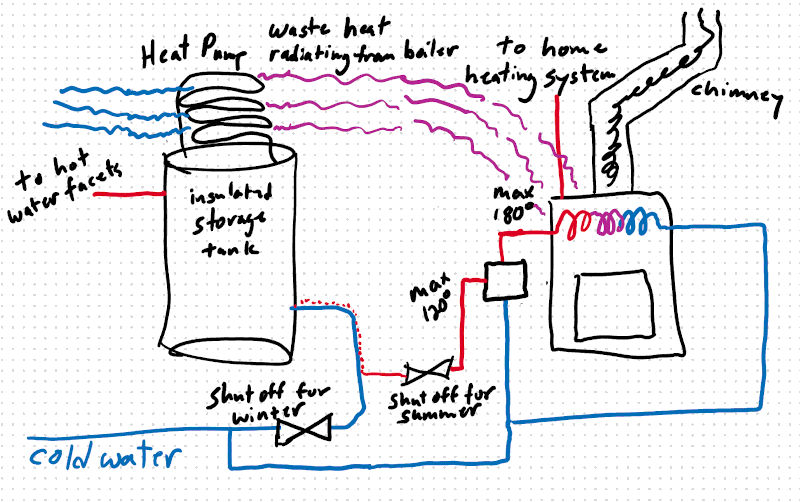 waste heat
radiating from boiler
Heat Pump
to home
heating system
chimney
to hot
water facets
insulated
storage
tank
max
180°
max
120°
shut off fur
winter
shut off fur
summer
cold water